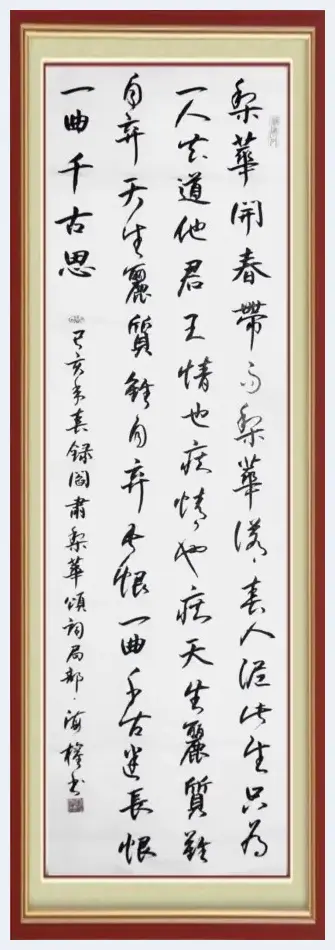 梨華開春帶雨梨華落春入泥此生只為
一人去道他君王情也痴情也痴天生麗質難
自弃天生麗質難自弃長恨一曲千古迷長恨
一曲千古思
己亥春錄閻肅梨華頌詞局部海書